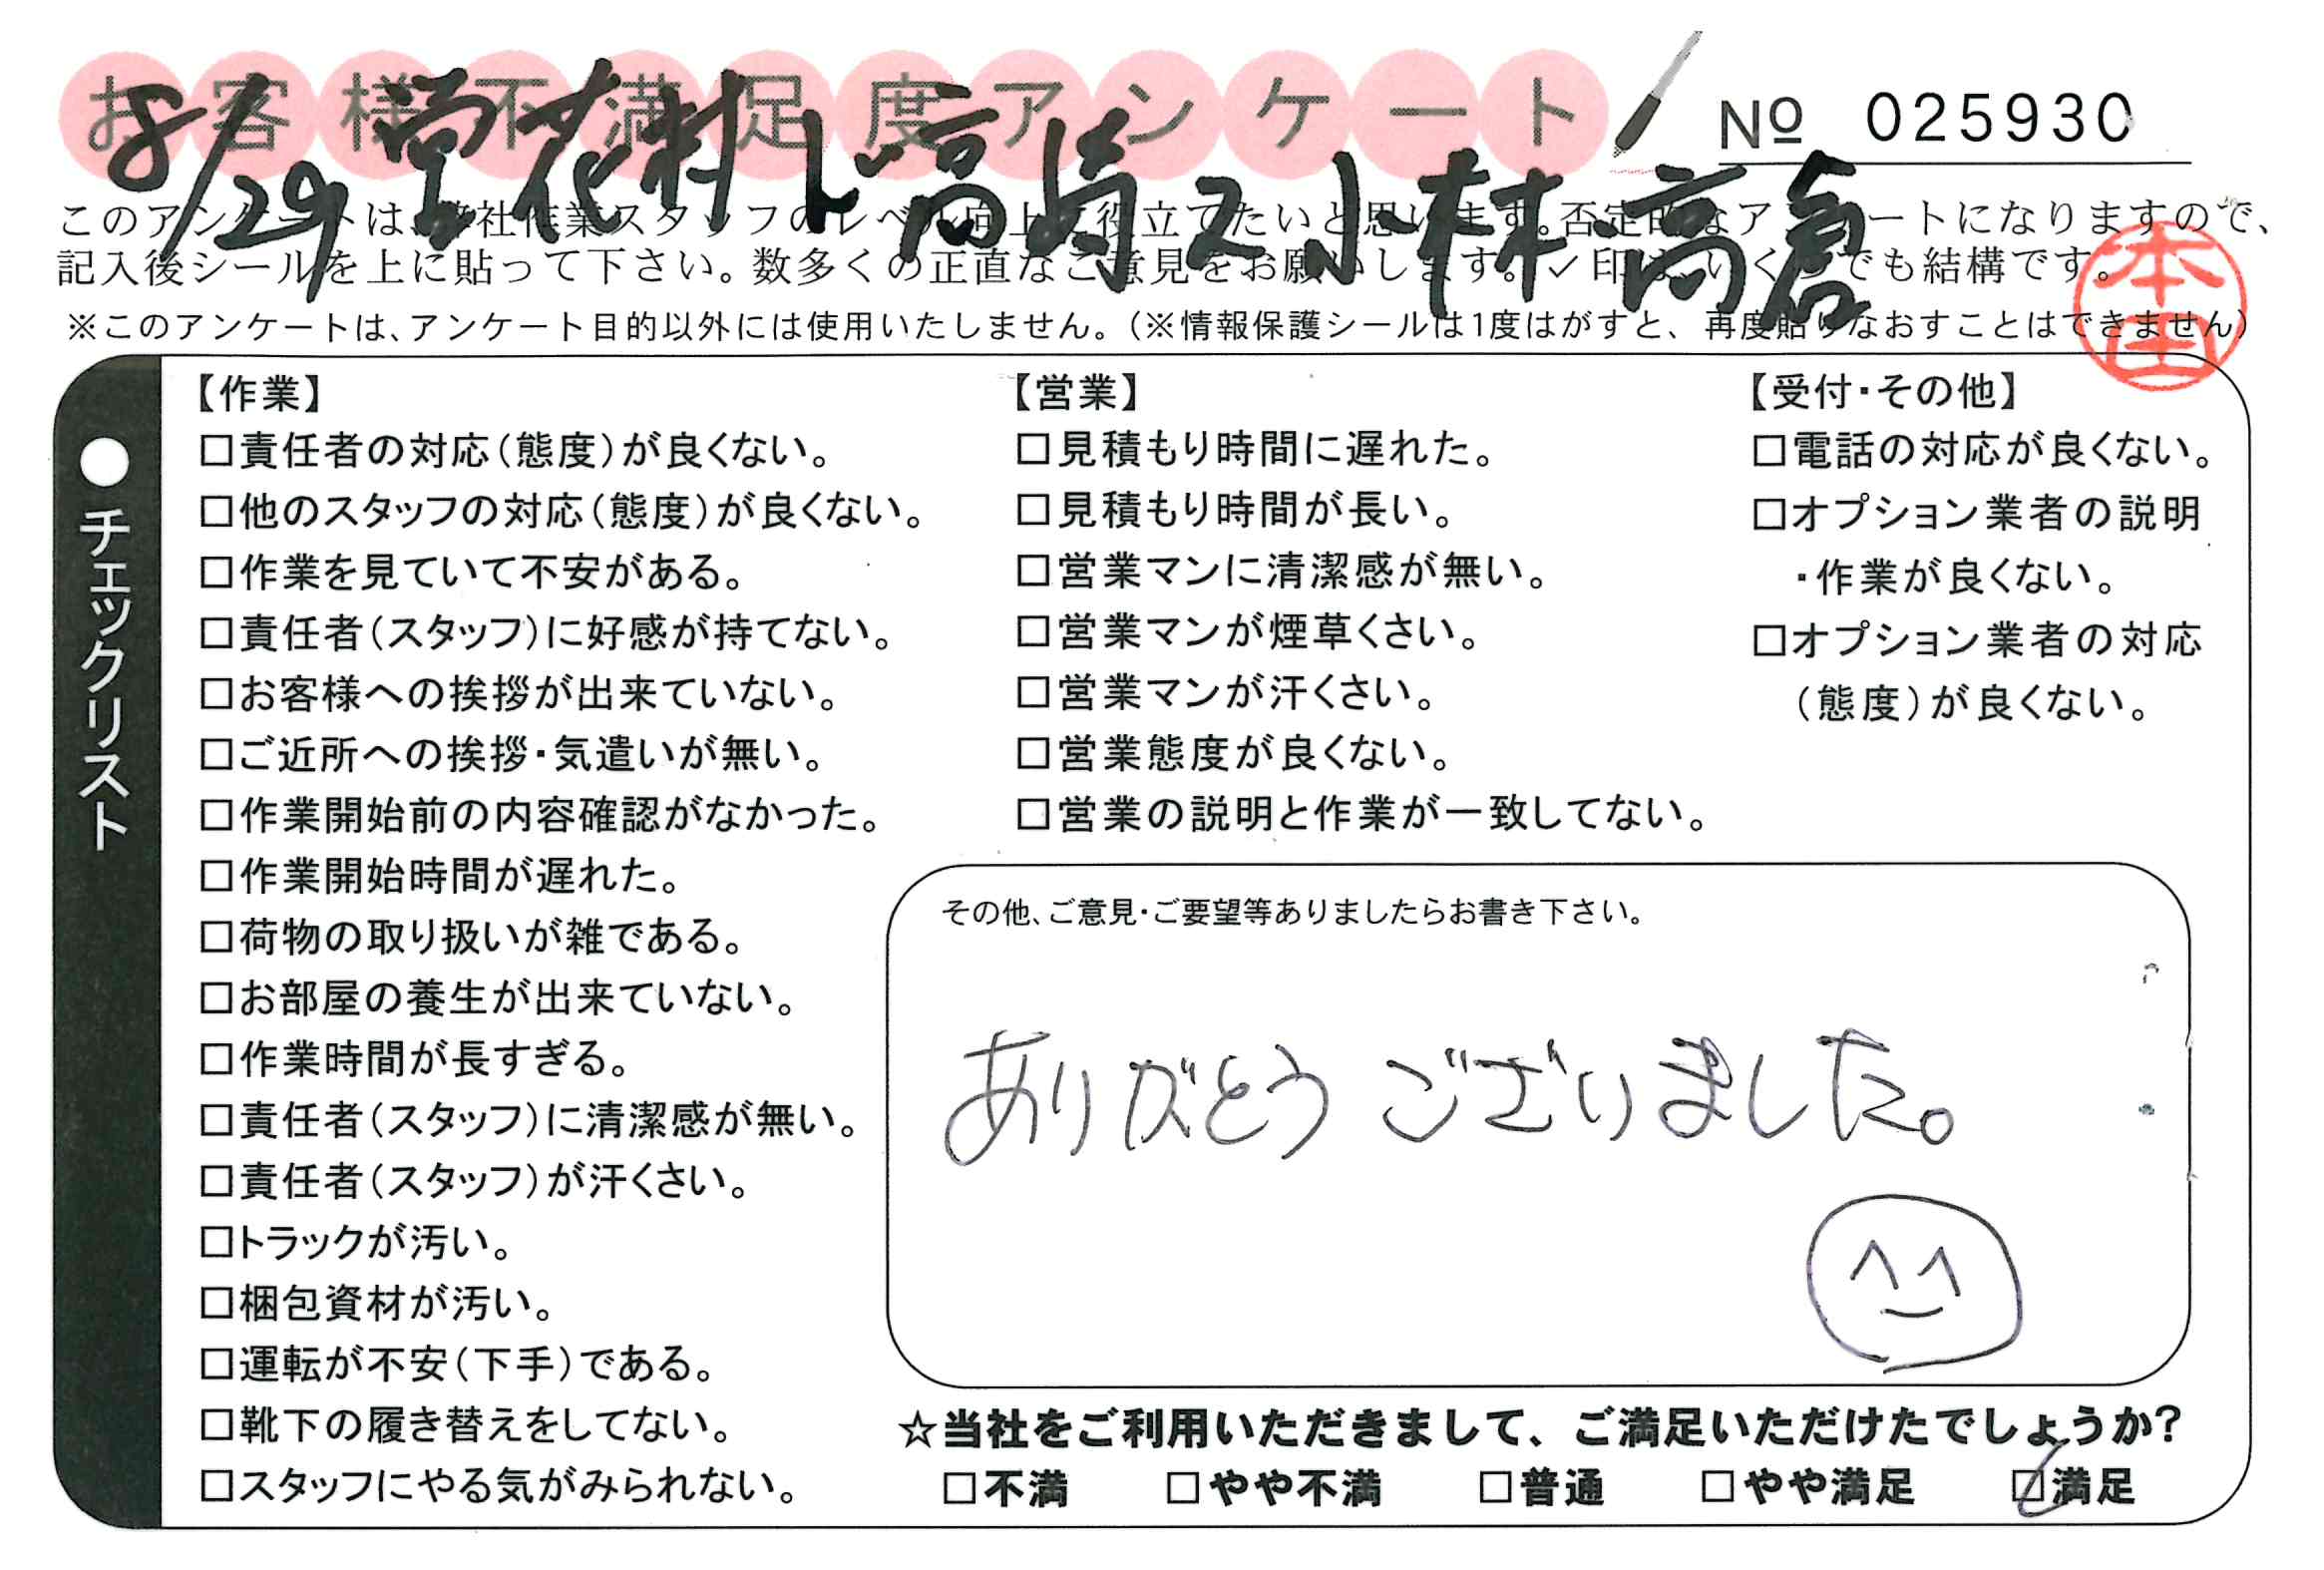 お客様不満足度アンケート
№ 025930
8/29 営花村 ド高崎 ス小林・高倉
このアンケートは、弊社作業スタッフのレベル向上に役立てたいと思います。否定的なアンケートになりますので、
記入後シールを上に貼って下さい。数多くの正直なご意見をお願いします。✓印は、いくつでも結構です。
※このアンケートは、アンケート目的以外には使用いたしません。(※情報保護シールは1度はがすと、再度貼りなおすことはできません)
本田
●チェックリスト
【作業】
□責任者の対応(態度)が良くない。
□他のスタッフの対応(態度)が良くない。
□作業を見ていて不安がある。
□責任者(スタッフ)に好感が持てない。
□お客様への挨拶が出来ていない。
□ご近所への挨拶・気遣いが無い。
□作業開始前の内容確認がなかった。
□作業開始時間が遅れた。
□荷物の取り扱いが雑である。
□お部屋の養生が出来ていない。
□作業時間が長すぎる。
□責任者(スタッフ)に清潔感が無い。
□責任者(スタッフ)が汗くさい。
□トラックが汚い。
□梱包資材が汚い。
□運転が不安(下手)である。
□靴下の履き替えをしてない。
□スタッフにやる気がみられない。
【営業】
□見積もり時間に遅れた。
□見積もり時間が長い。
□営業マンに清潔感が無い。
□営業マンが煙草くさい。
□営業マンが汗くさい。
□営業態度が良くない。
□営業の説明と作業が一致してない。
【受付・その他】
□電話の対応が良くない。
□オプション業者の説明
・作業が良くない。
□オプション業者の対応
(態度)が良くない。
その他、ご意見・ご要望等ありましたらお書き下さい。
ありがとうございました。
☆当社をご利用いただきまして、ご満足いただけたでしょうか?
□不満 □やや不満 □普通 □やや満足 ☑満足